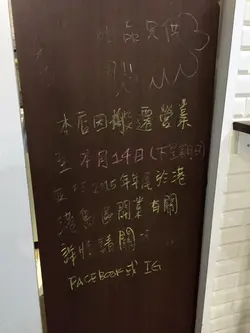 品只供
本店因搬遷營業
至 本月14日(下星期日)
並於2015年年尾於港
港島區開業有關
詳情請關..
FACEBOOK或IG